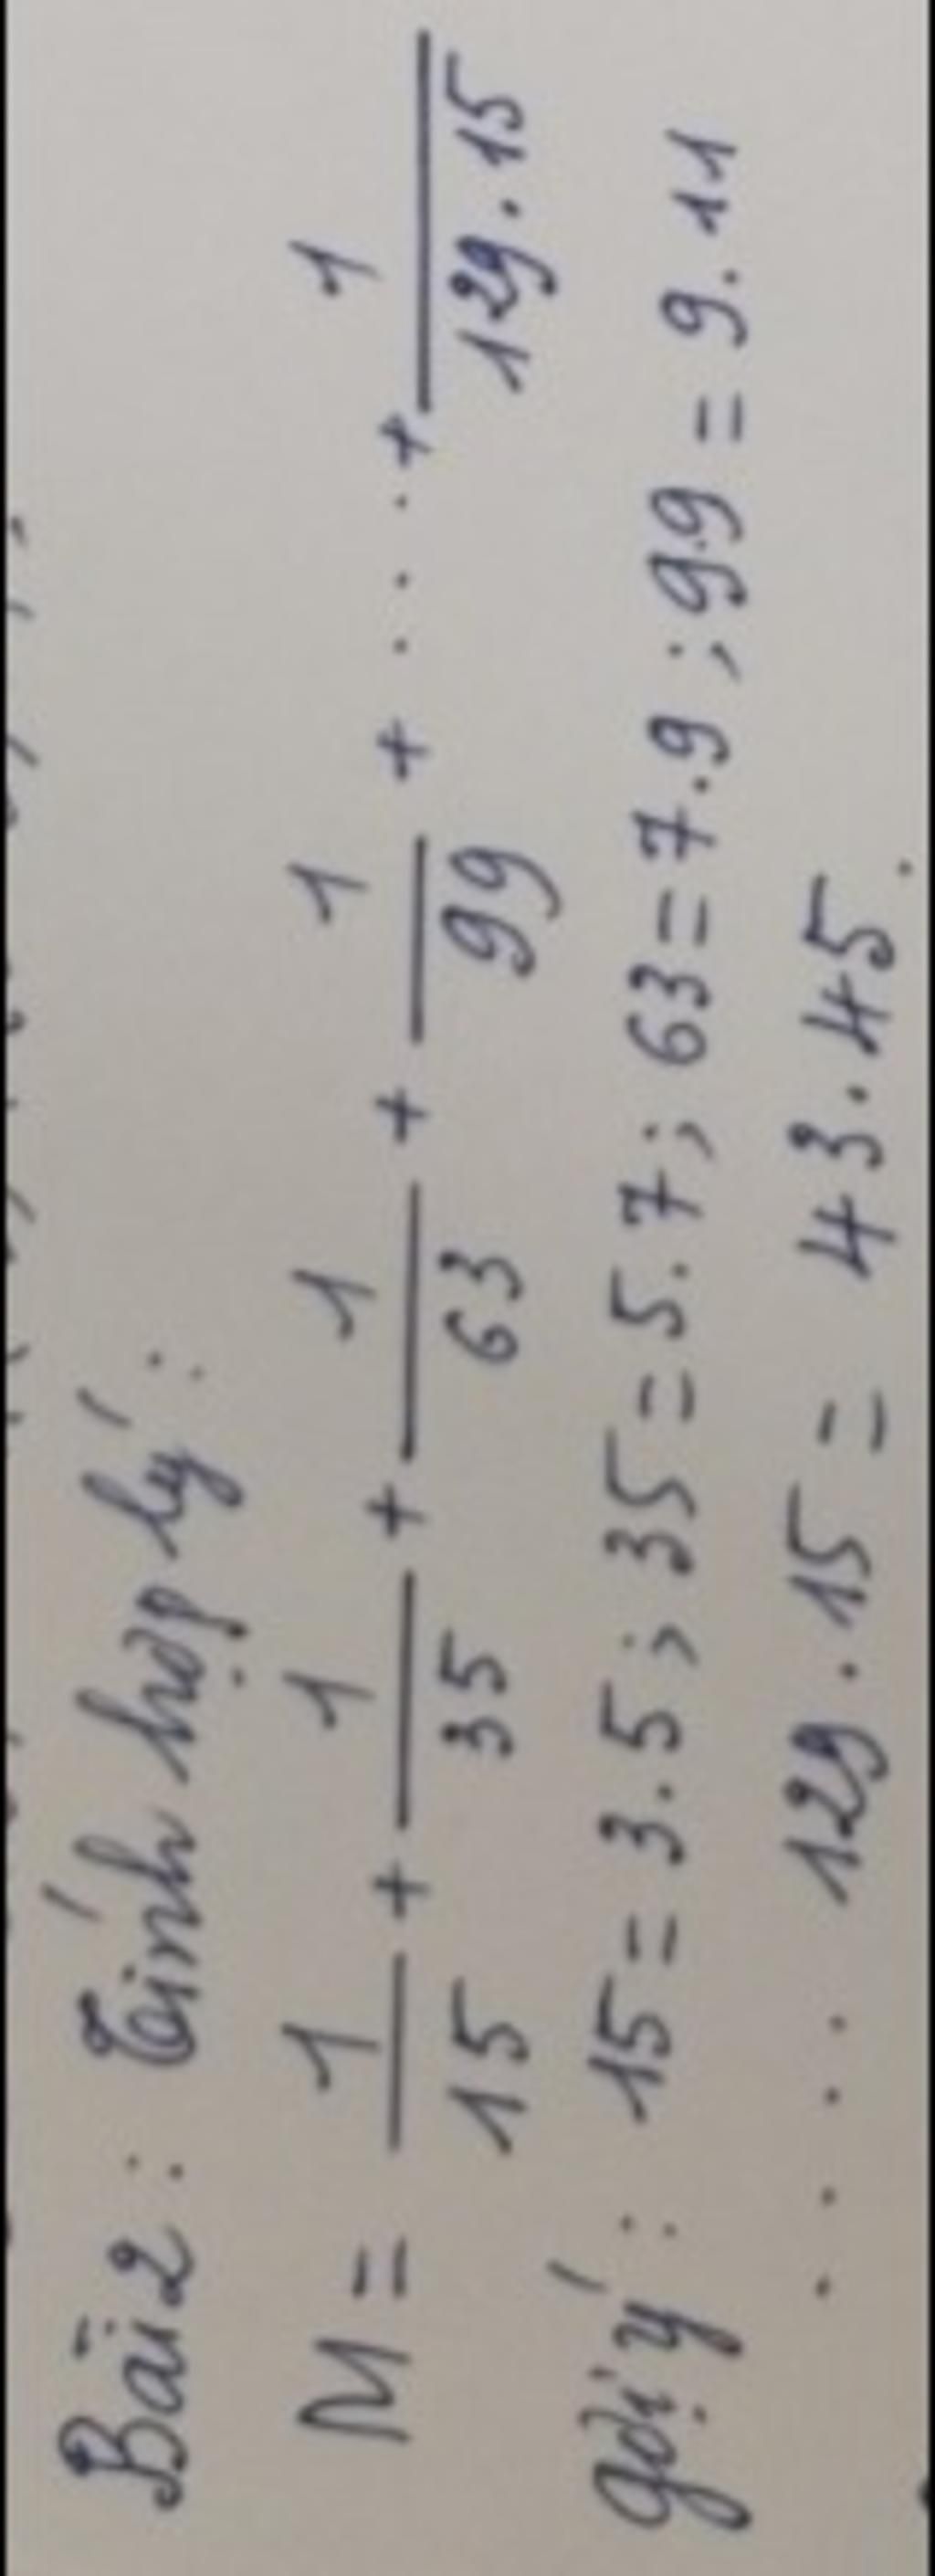 Bài 2: Tính hợp lý:
M = 1/15 + 1/35 + 1/63 + 1/99 + .... + 1/129.15
gợi ý: 15 = 3.5; 35 = 5.7; 63 = 7.9; 99 = 9.11
.... 129.15 = 43.45.